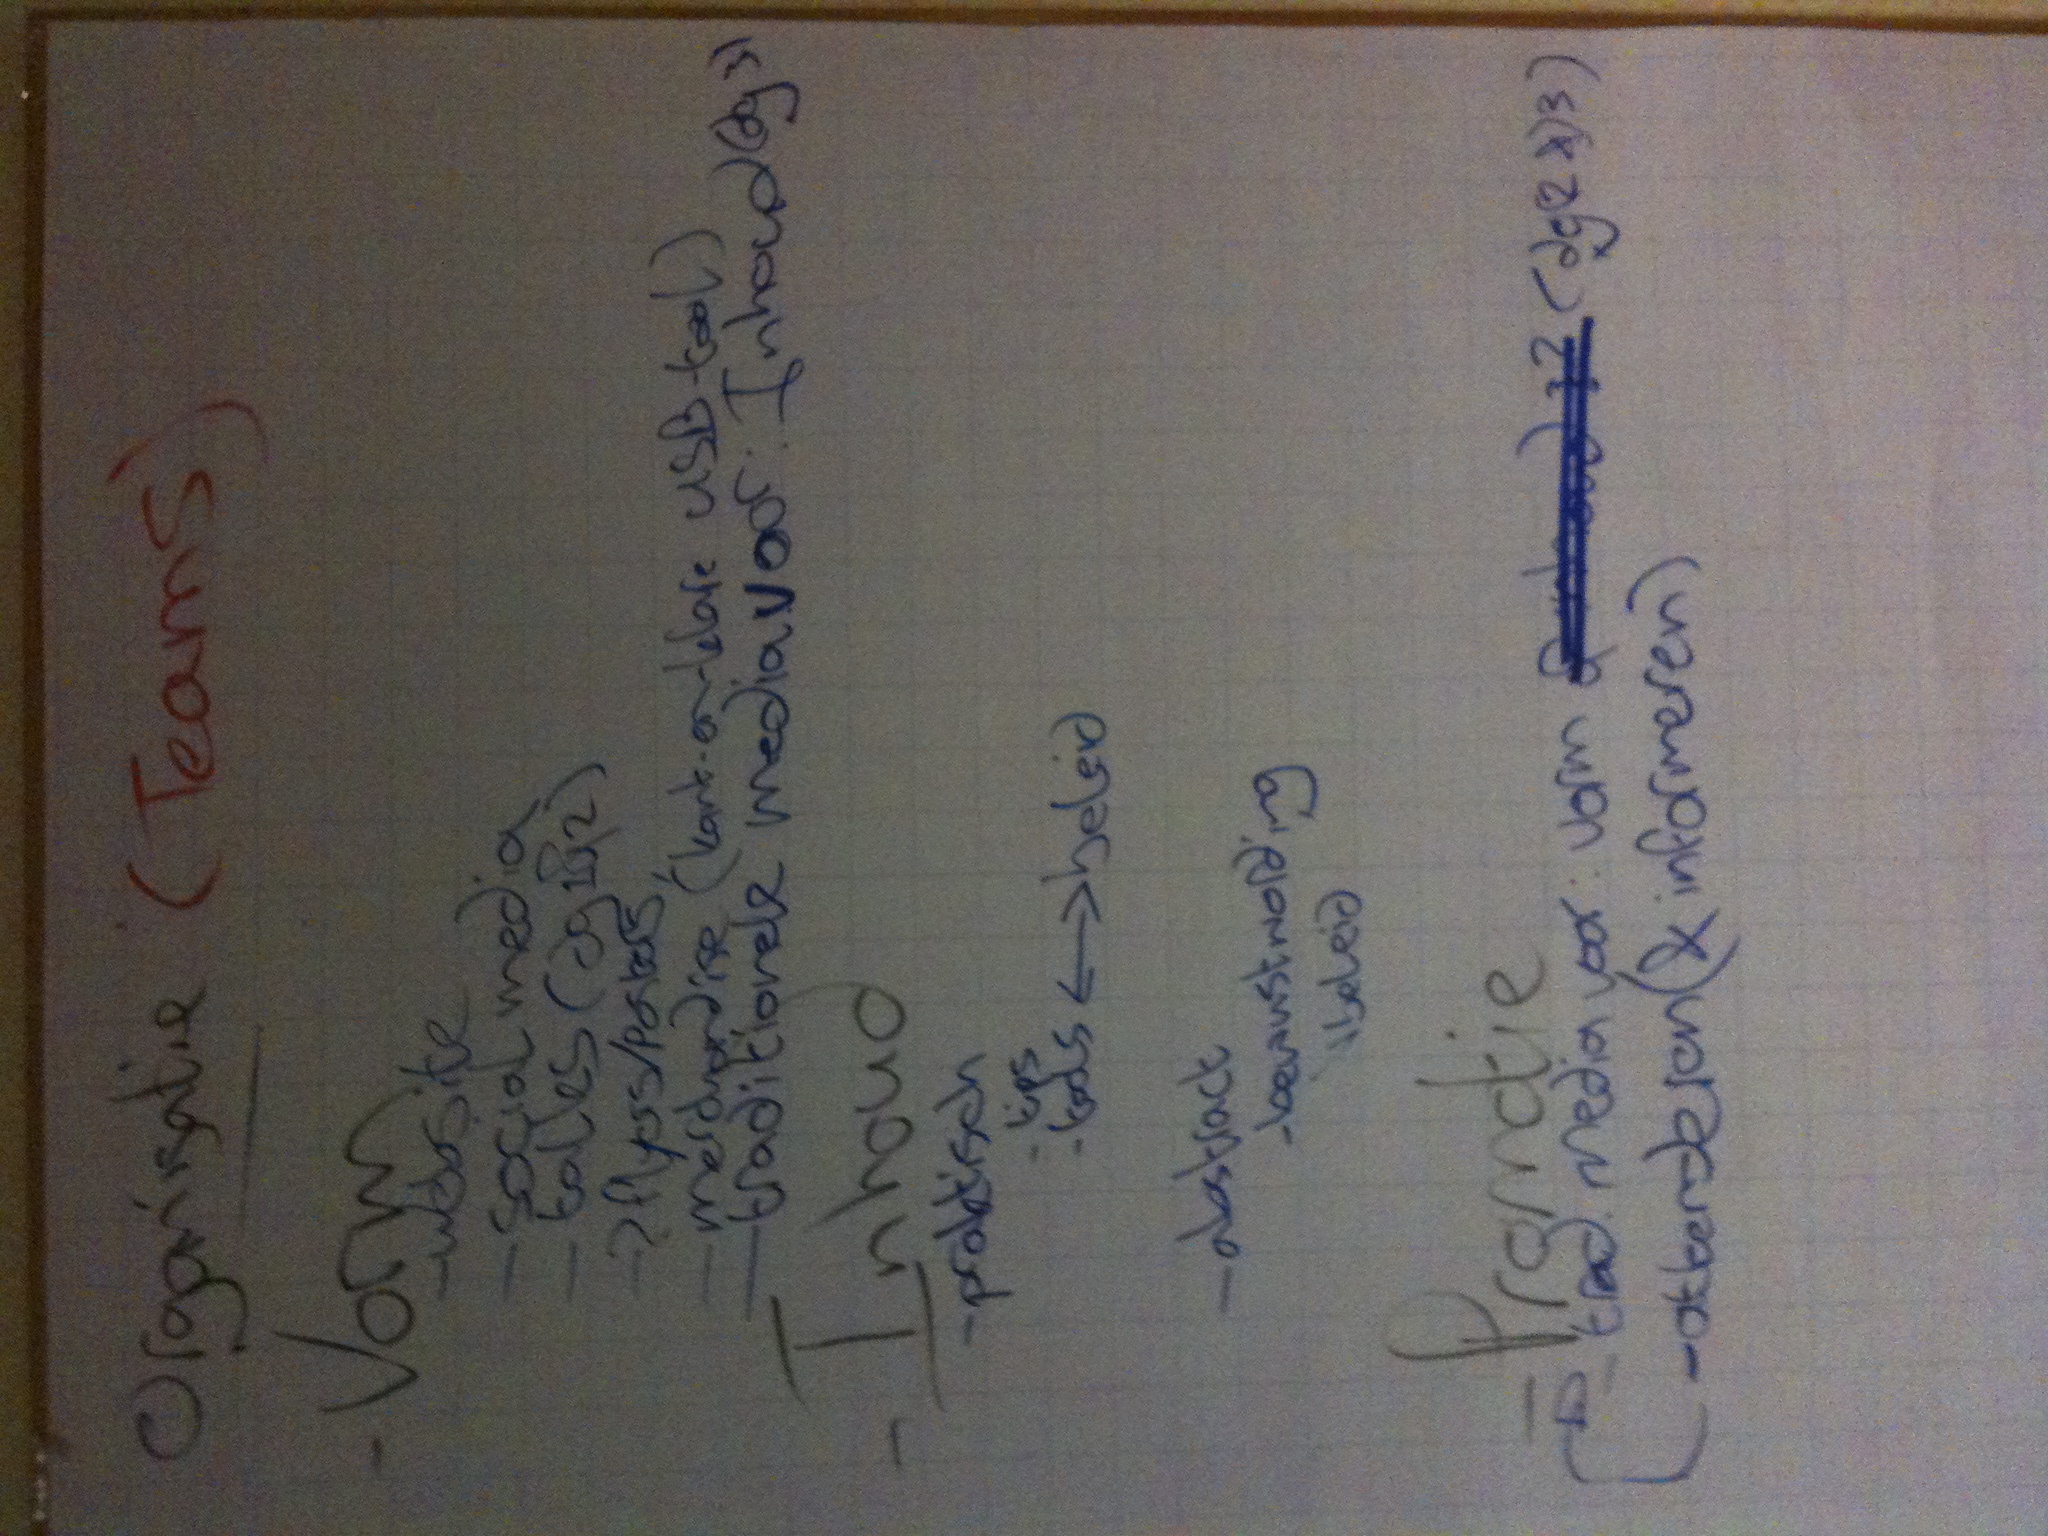 Organisatie (Teams)
- Vorm
- website
- social media
- tafels (dg 1&2)
- ? flyers/posters,
- merchandise (kant-en-klare USB-tool)
- traditionele media voor: Inhoud (dg 3)
- Inhoud
- praktisch
- tips
- tools <-> beleid
- abstract
- bewustmaking
"beleid
- Promotie
- trad. media voor: vorm (dg 2 & 3)
- attenderen (& informeren)